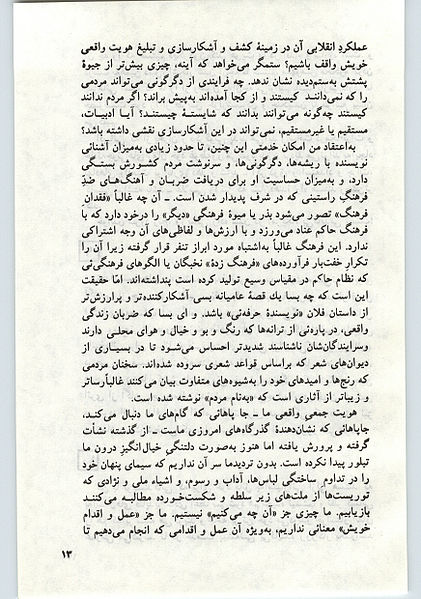 عملکردِ انقلابی آن در زمینهٔ کشف و آشکارسازی و تبلیغ هویت واقعی
خویش واقف باشیم؟ ستمگر می‌خواهد که آینه، چیزی بیش‌تر از جیوهٔ
پشتش به‌ستم‌دیده نشان ندهد. چه فرایندی از دگرگونی می‌تواند مردمی
را که نمی‌دانند کیستند و از کجا آمده‌اند به‌پیش براند؟ اگر مردم ندانند
کیستند چه‌گونه می‌توانند بدانند که شایستهٔ چیستند؟ آیا ادبیات،
مستقیم یا غیرمستقیم، نمی‌تواند در این آشکارسازی نقشی داشته باشد؟
به‌اعتقاد من امکان خدمتی این چنین، تا حدود زیادی به‌میزان آشنائی
نویسنده با ریشه‌ها، دگرگونی‌ها، و سرنوشت مردم کشورش بستگی
دارد، و به‌میزان حساسیت او برای دریافت ضربان و آهنگ‌های ضدِ
فرهنگِ راستینی که در شرف پدیدار شدن است. ـ آن چه غالباً «فقدان
فرهنگ» تصور می‌شود بذر یا میوهٔ فرهنگی «دیگر» را درخود دارد که با
فرهنگ حاکم عناد می‌ورزد و با ارزش‌ها و لفاظی‌های آن وجه اشتراکی
ندارد. این فرهنگ غالباً به‌اشتباه مورد ابراز تنفر قرار گرفته زیرا آن را
تکرارِ خفت‌بار فرآورده‌های «فرهنگ زدهٔ» نخبگان یا الگوهای فرهنگی‌ئی
که نظام حاکم در مقیاس وسیع تولید کرده است پنداشته‌اند. امّا حقیقت
این است که چه بسا یك قصهٔ عامیانه بسی آشکارکننده‌تر و پرارزش‌تر
از داستان فلان «نویسندهٔ حرفه‌ئی» باشد. و ای بسا که ضربان زندگی
واقعی، در پاره‌ئی از ترانه‌ها که رنگ و بو و خیال و هوای محلی دارند
وسرایندگان‌شان ناشناسند شدیدتر احساس می‌شود تا در بسیاری از
دیوان‌های شعر که براساس قواعد شعری سروده شده‌اند. سخنان مردمی
که رنج‌ها و امیدهای خود را به‌شیوه‌های متفاوت بیان می‌کنند غالباًرساتر
و زیباتر از آثاری است که «به‌نام مردم» نوشته شده است.
هویت جمعیِ واقعی ما ـ جا پاهائی که گام‌های ما دنبال می‌کند،
جاپاهائی که نشان‌دهندهٔ گذرگاه‌های امروزی ماست ـ از گذشته نشأت
گرفته و پرورش یافته اما هنوز به‌صورت دلتنگیِ خیال‌انگیزِ درون ما
تبلور پیدا نکرده است. بدون تردیدما سر آن نداریم که سیمای پنهان خود
را در تداومِ ساختگی لباس‌ها، آداب و رسوم، و اشیاء ملی و نژادی که
توریست‌ها از ملت‌های زیر سلطه و شکست‌خورده مطالبه می‌کنند
بازیابیم. ما چیزی جز «آن چه می‌کنیم» نیستیم. ما جز «عمل و اقدام
خویش» معنائی نداریم، به‌ویژه آن عمل و اقدامی که انجام می‌دهیم تا
۱۳